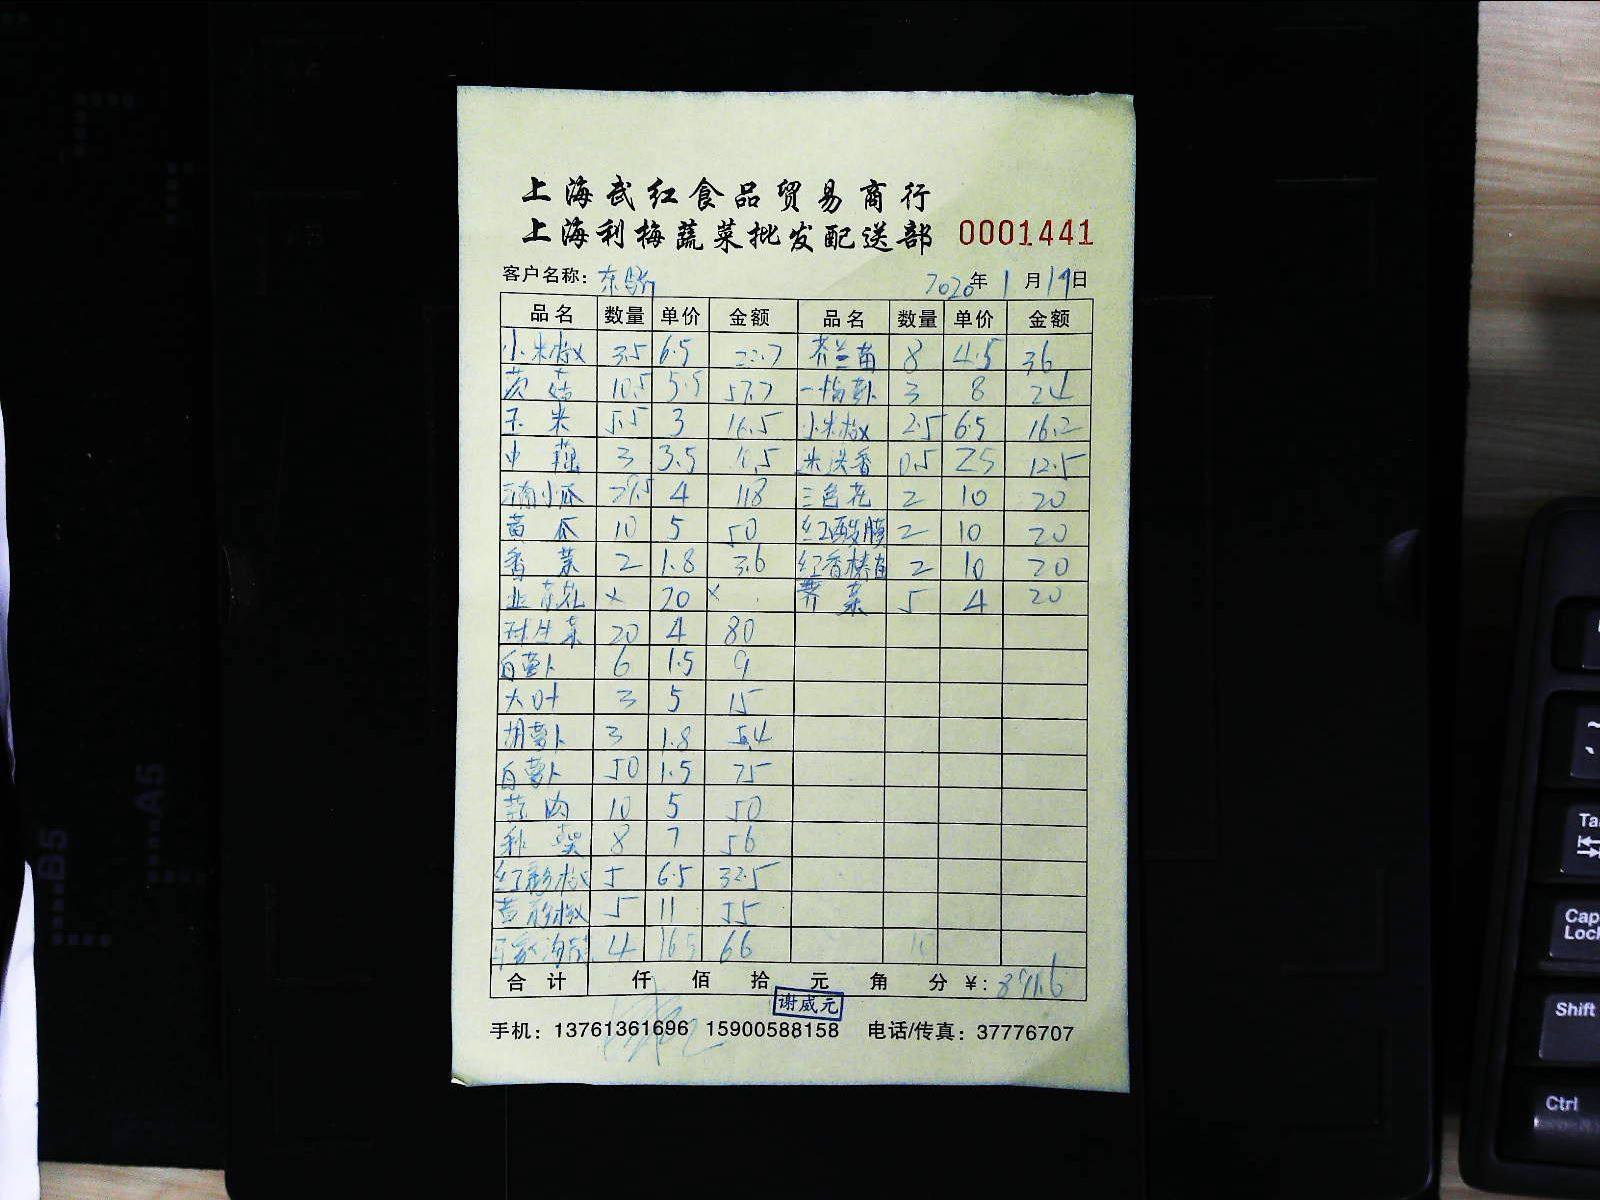 上海武红食品贸易商行
上海利梅蔬菜批发配送部 0001441
客户名称: 东骄 2020年 1月19日
品名 数量 单价 金额 品名 数量 单价 金额
小米椒 3.5 6.5 22.7 芥兰苗 8 4.5 36
茨菇 10.5 5.5 57.7 一指 3 8 24
玉米 5.5 3 16.5 小米椒 2.5 6.5 16.2
中菇 3 3.5 10.5 迷迭香 0.5 25 12.5
小瓜 29.5 4 118 三色花 2 10 20
黄瓜 10 5 50 红酸膜 2 10 20
香菜 2 1.8 3.6 红香椿苗 2 10 20
韭菜花 × 20 × 荠菜 5 4 20
球生菜 20 4 80
白萝卜 6 1.5 9
大叶 3 5 15
胡萝卜 3 1.8 5.4
白萝卜 50 1.5 75
蒜肉 10 5 50
8 7 56
红彩椒 5 6.5 32.5
黄彩椒 5 11 55
4 16.5 66
合计 仟 佰 拾 元 角 分 ¥: 891.6
谢威元
手机: 13761361696 15900588158 电话/传真: 37776707
B5
A5
Tab
Caps Lock
Shift
Ctrl